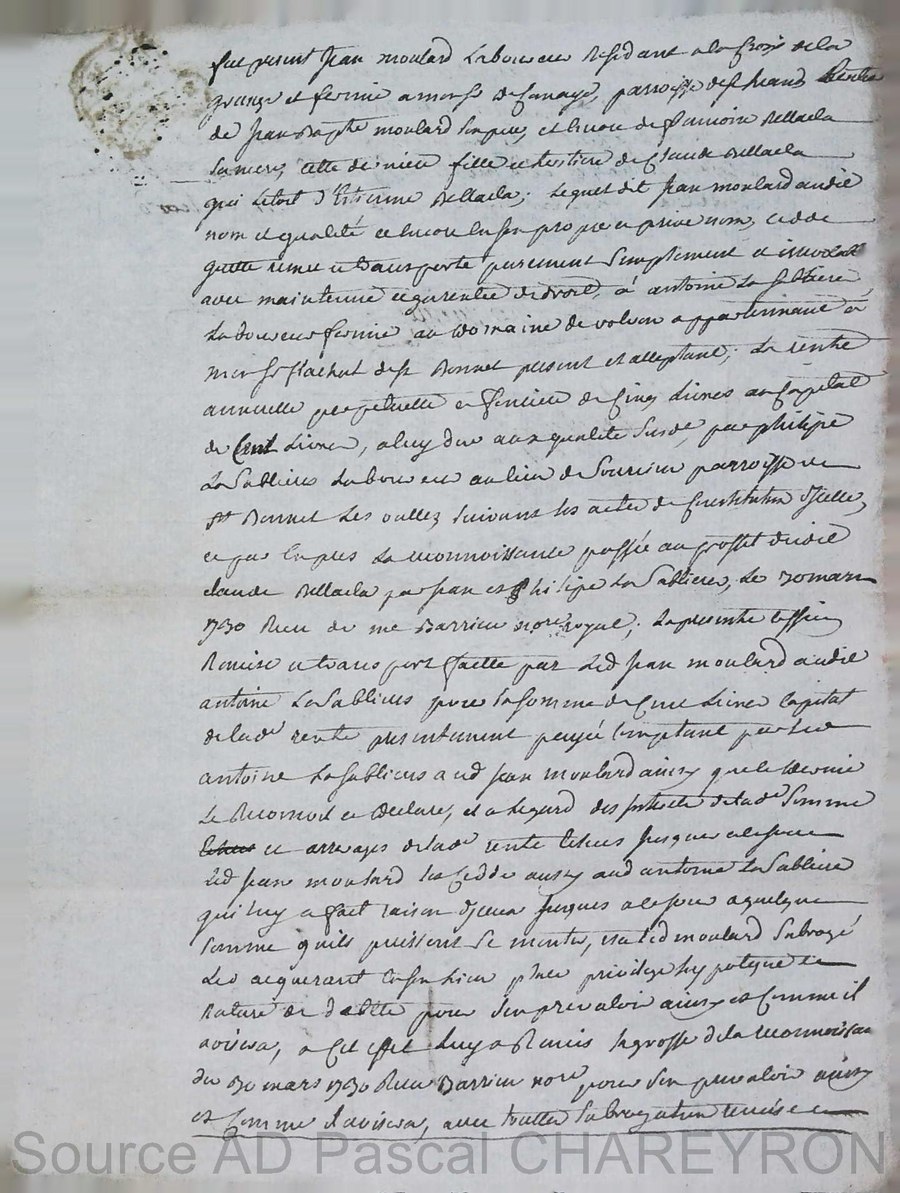 fut present Jean moulard Laboureur Residant a la Croix de la
grange et fermie a monsr de , parroisse de st heritier
de Jean Bapte moulard son pere, et encore de Bellacla
sa mere, cette derniere fille et heritiere de Claude Bellacla
qui letoit d'Estienne Bellacla; Lequel dit Jean moulard audit
nom et qualité et encore en son propre et privé nom, cedde
quitte remet et transporte purement simplement et
avec maintenue et garentie de droit, a antoine La Sabliere
Laboureur fermie au domaine de volron appartenant a
monsr flachat de st Bonnet present et acceptant; La rente
annuelle perpetuelle et fonciere de Cinq Livres au Capital
de Cent Livres, a luy due aux qualités susde, par philipe
La Sabliere Laboureur au lieu de parroisse de
st Bonnet Les oulles suivant les actes de Constitution d'icelle,
et par La reconnoissance passée au proffit dudit
claude Bellacla par Jean et philipe La Sabliere, Le 30 mars
1730 Recu de me Barrieu nore royal; La presente cession
Remise et transport faitte par Led Jean moulard audit
antoine La Sabliere pour la somme de Cent Livres Capital
de lade rente presentement payée comptant par led
antoine La Sabliere aud Jean moulard ainsy que le dernier
Le Reconnoit et declare, et a legard des de lade somme
et arrerages de lade rente echus jusques a ce jour
Led Jean moulard les Cedde aussy aud antoine La Sabliere
qui luy a fait raison d'iceux jusques a ce jour a quelque
somme quils puissent se monter, et a led moulard subrogé
Led acquerant en son lieu place privilege hypoteque et
nature de debtte pour s'en prevaloir ainsy et Comme il
avisera, a Cet effet Luy a Remis la grosse de la reconnoissance
du 30 mars 1730 Recu Barrieu nore pour s'en prevaloir ainsy
et Comme il avisera, avec touttes subrogation
Source AD Pascal CHAREYRON